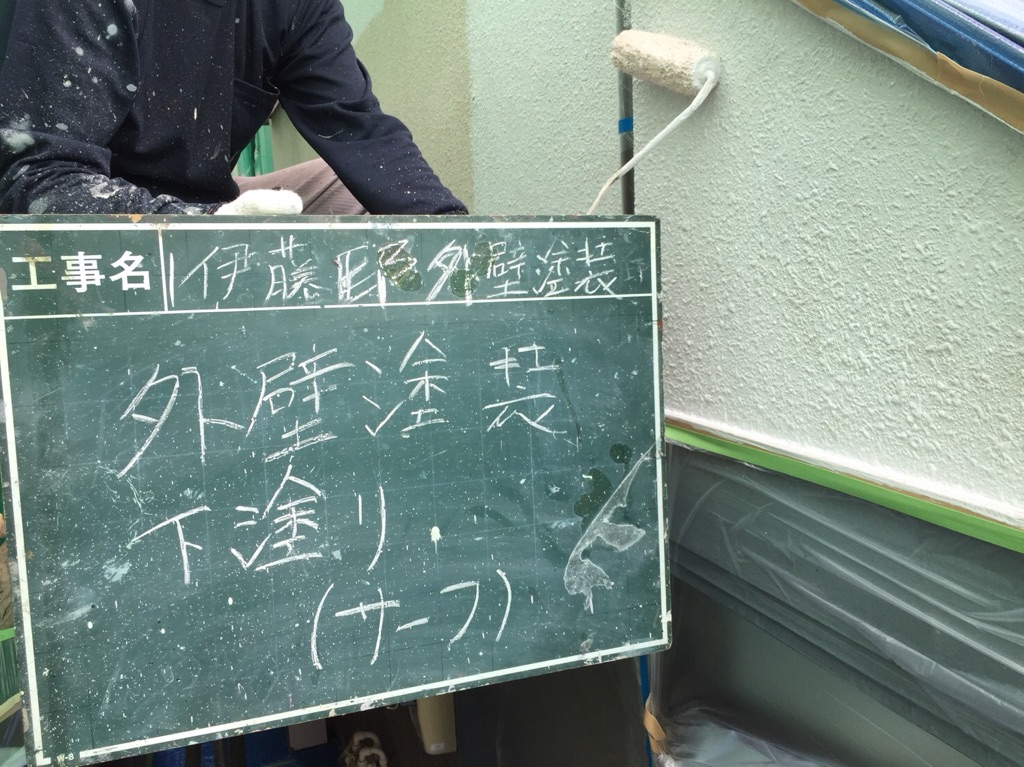 工事名 伊藤邸 外壁塗装
外壁塗装
下塗り
(サーフ)
W-8